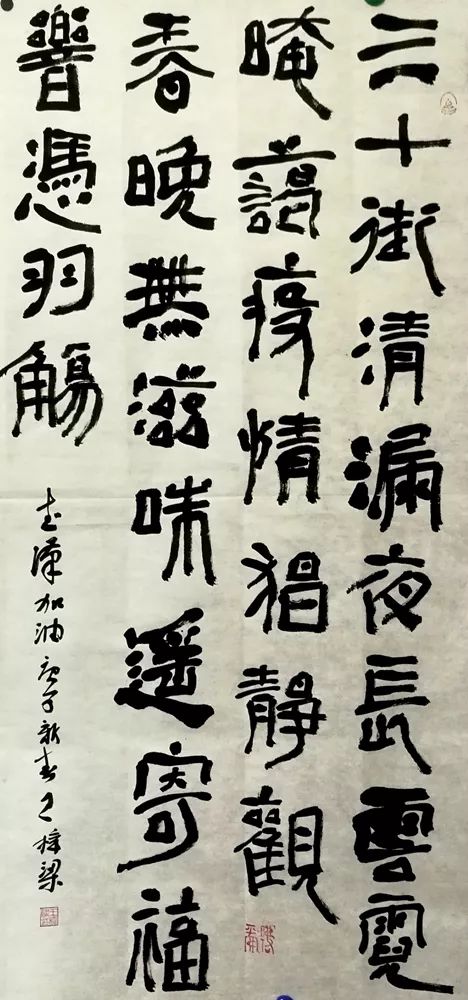 三十街清漏夜長雲霓
晻藹疫情猖靜觀
春晚無滋味遙寄福
響憑羽觴
武漢加油庚子新春